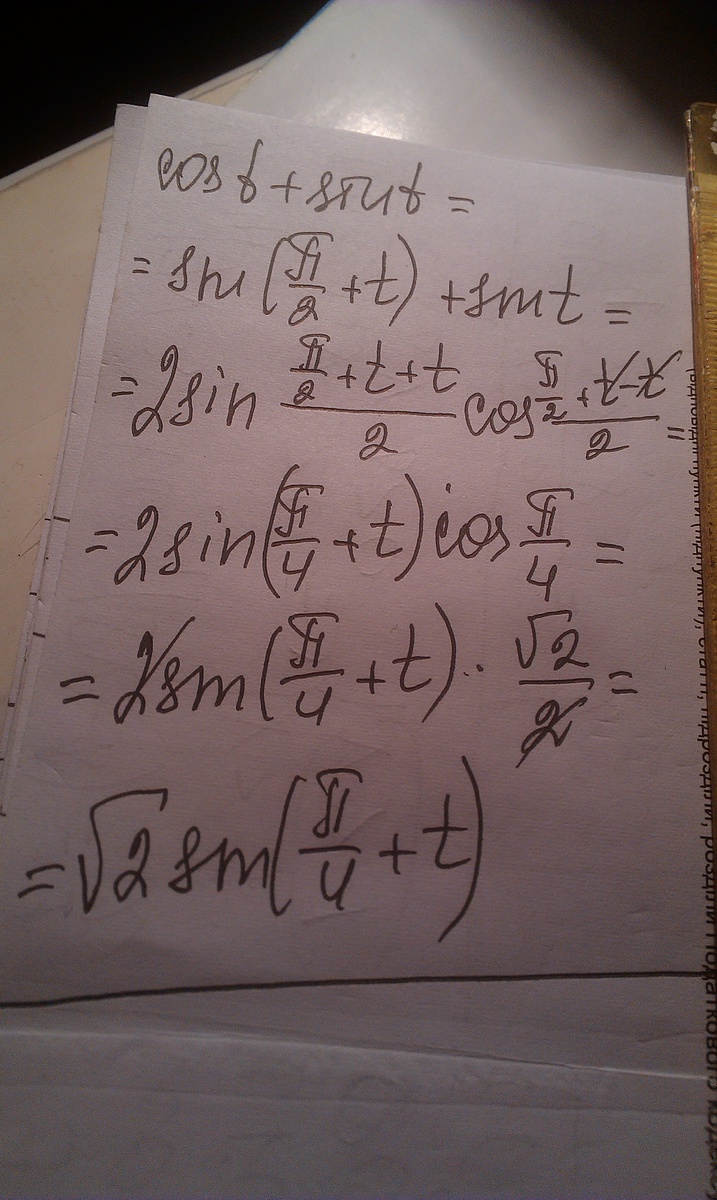 cos t + sin t =
= sin (π/2 + t) + sin t =
= 2 sin (π/2 + t + t)/2 cos (π/2 + t - t)/2 =
= 2 sin (π/4 + t) cos π/4 =
= 2 sin (π/4 + t) · √2/2 =
= √2 sin (π/4 + t)